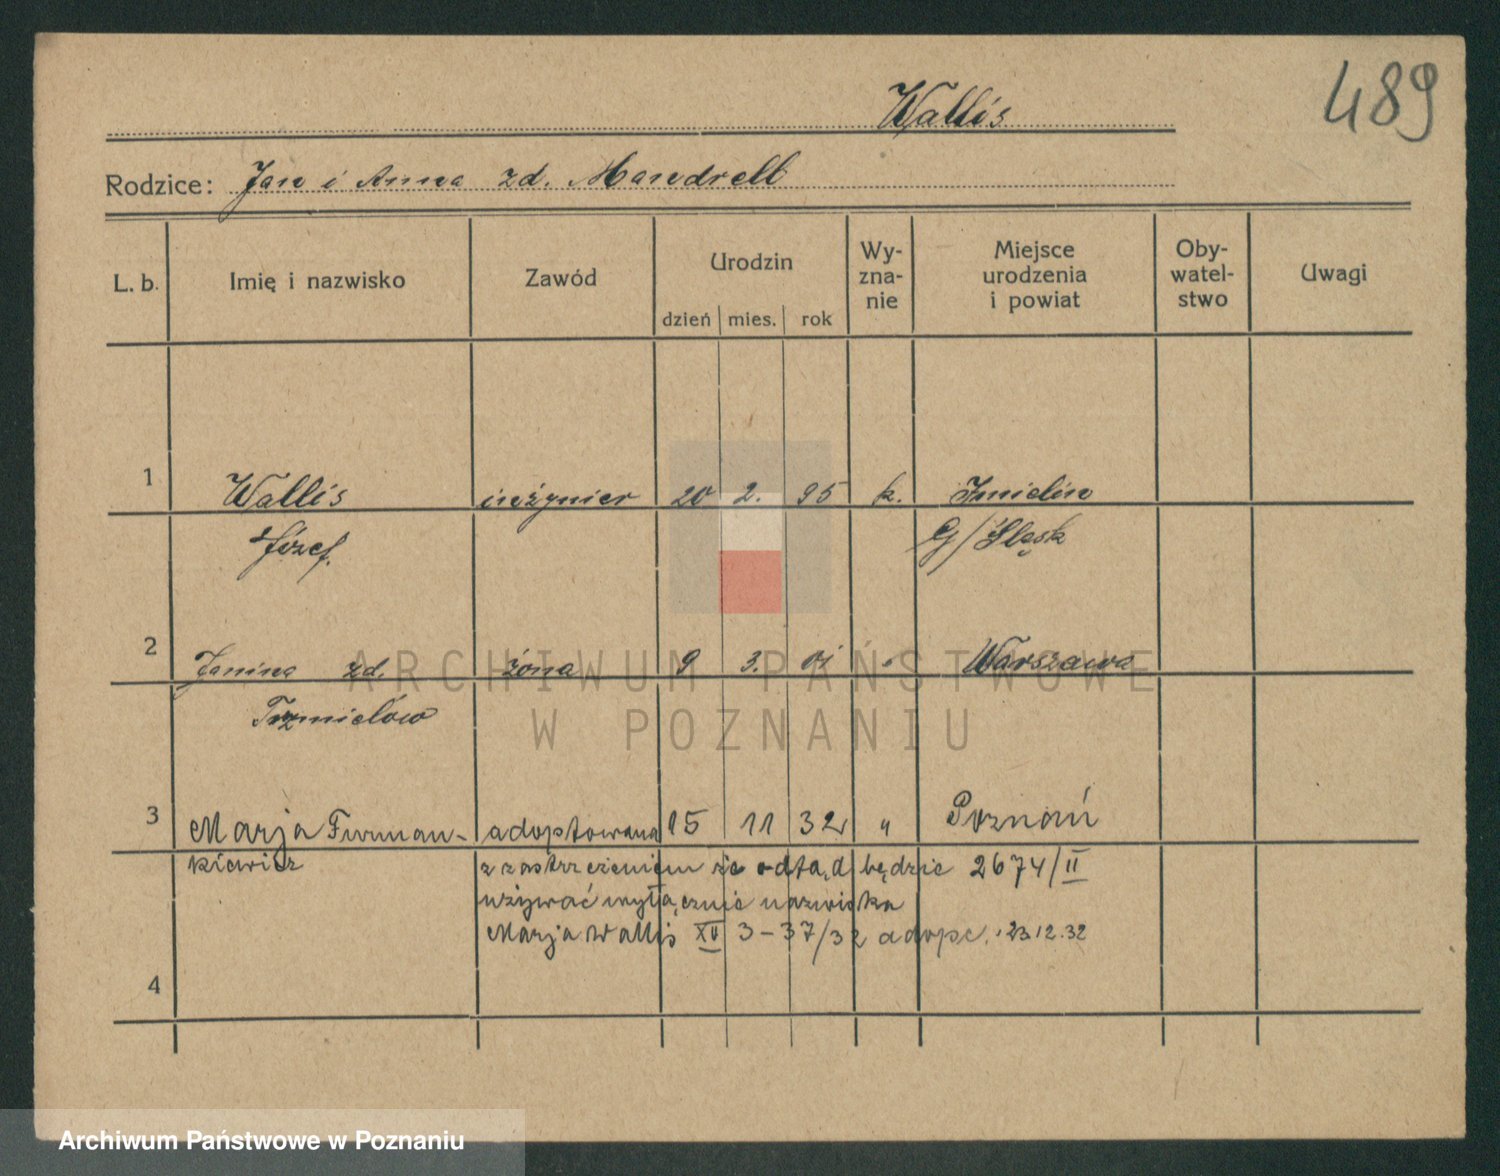 489
Wallis
Rodzice: Jan i Anna zd. Mandrell
L. b. Imię i nazwisko Zawód Urodzin dzień mies. rok Wy-zna-nie Miejsce urodzenia i powiat Oby-watel-stwo Uwagi
1 Wallis inżynier 20 2. 95 k. Imielin
Józef. G/Śląsk
2 Janina zd. żona 9 3. 01 " Warszawa
ARCHIWUM PAŃSTWOWE
W POZNANIU
3 Marja Furman- adoptowana 15 11 32 " Poznań
kiewicz z zastrzeżeniem że odtąd będzie 2674/II
używać wyłącznie nazwiska
Marja Wallis XV 3-37/32 adopc. 23.12.32
4
Archiwum Państwowe w Poznaniu